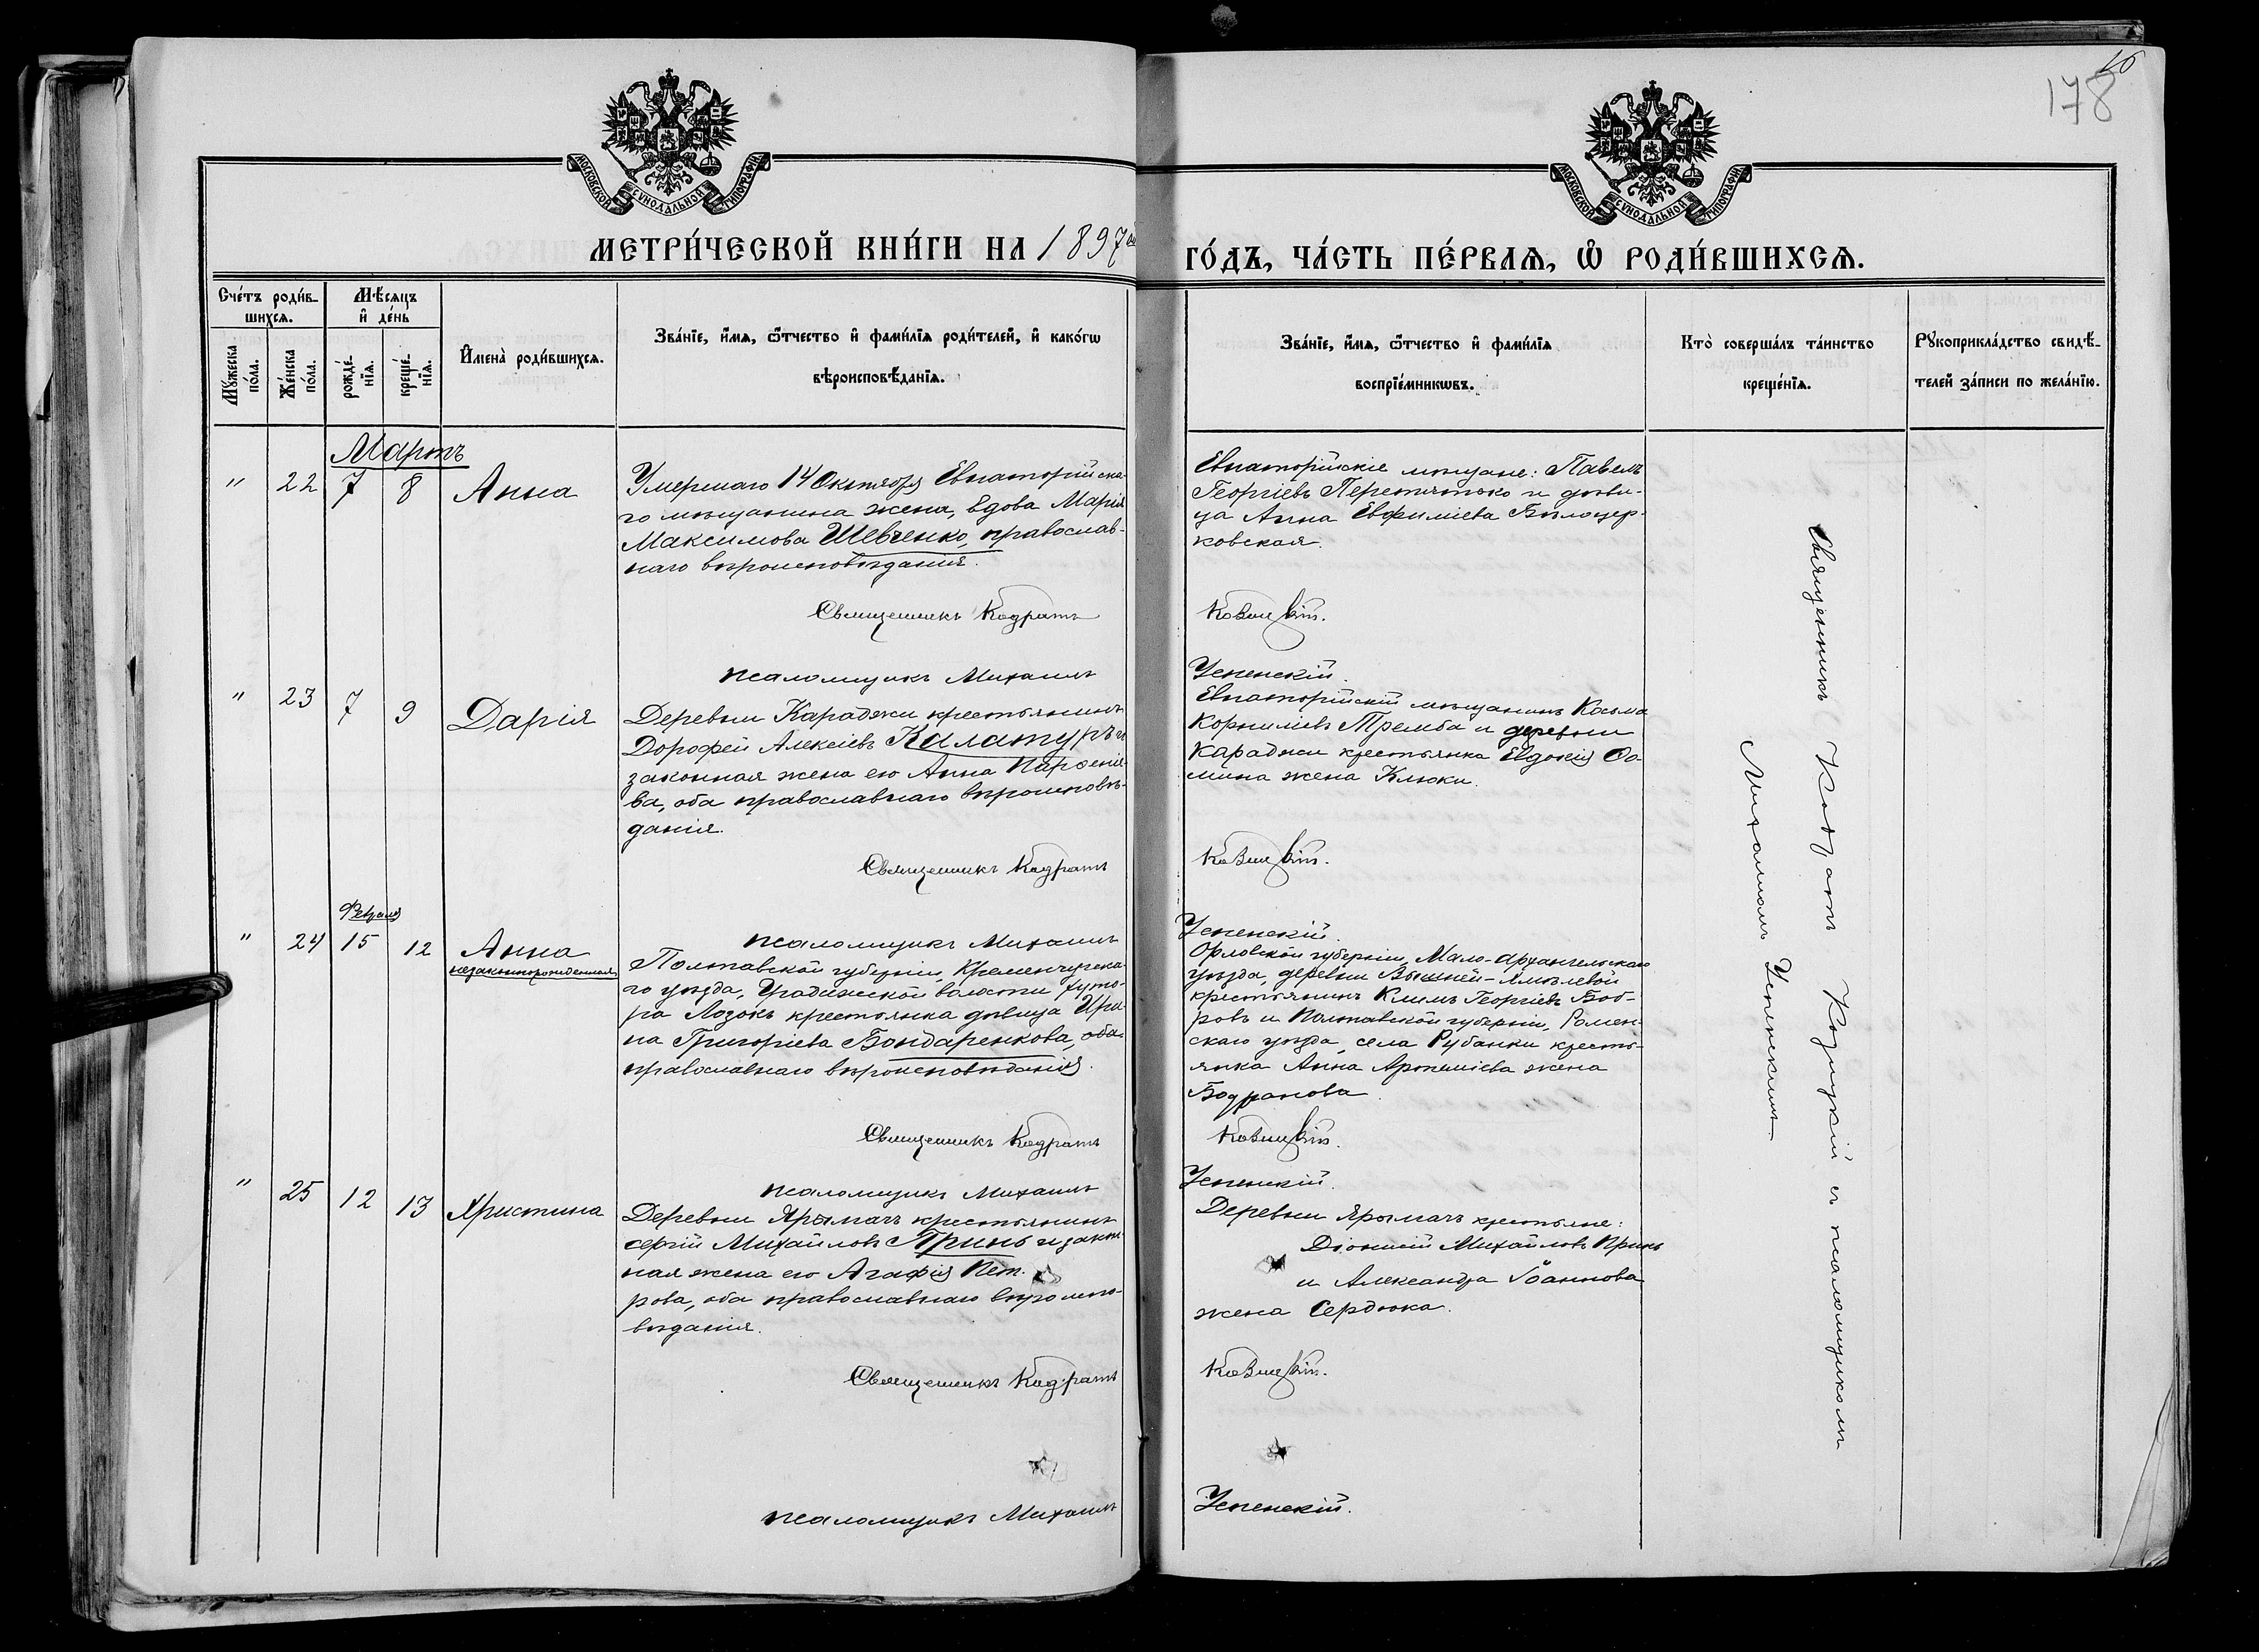 178
МОСКОВСКОЙ СУНОДАЛЬНОЙ ТИПОГРАФИИ
МОСКОВСКОЙ СУНОДАЛЬНОЙ ТИПОГРАФИИ
МЕТРИ́ЧЕСКОЙ КНИ́ГИ НА 1897й
ГО́ДЪ, ЧА́СТЬ ПЕ́РВАЯ, Ѡ РОДИ́ВШИХСЯ.
Сче́тъ роди́в-
шихся.
Мѣ́сяцъ
и де́нь
Му́жеска по́ла.
Же́нска по́ла.
рожде́-
нія.
креще́-
нія.
Имена̀ роди́вшихся.
Зва́ніе, и́мя, ѻ҆́тчество и фами́лія роди́телей, и како́гѡ
вѣроисповѣ́данія.
Зва́ніе, и́мя, ѻ҆́тчество и фами́лія
воспріе́мникѡвъ.
Кто̀ соверша́лъ та́инство
креще́нія.
Рꙋкоприкла́дство свидѣ́-
телей за́писи по жела́нію.
Мартъ
" 22 7 8 Анна
Умершаго 14 Октября Евпаторійска-
го мѣщанина жена, вдова Марія
Максимова Шевченко, православ-
наго вѣроисповѣданія.
Священникъ Кодратъ
псаломщикъ Михаилъ
Евпаторійскіе мѣщане: Павелъ
Георгіевъ Перетятько и дѣви-
ца Анна Евфиміева Бѣлоцер-
ковская.
Успенскій.
" 23 7 9 Дарія
Деревни Караджи крестьянинъ
Дорофей Алексіевъ Каламуръ и
законная жена его Анна Парѳеніе-
ва, оба православнаго вѣроисповѣ-
данія.
Священникъ Кодратъ
псаломщикъ Михаилъ
Евпаторійскій мѣщанинъ Косьма
Корниліевъ Тремба и деревни
Караджи крестьянка Евдокія Ѳо-
мина жена Клюки.
Успенскій.
Февраля
" 24 15 12 Анна
незаконнорожденная
Полтавской губерніи, Кременчугска-
го уѣзда, Градижской волости хуто-
ра Лозокъ крестьянка дѣвица Ири-
на Григоріева Бондаренкова, оба
православнаго вѣроисповѣданія.
Священникъ Кодратъ
псаломщикъ Михаилъ
Орловской губерніи, Мало-Архангельскаго
уѣзда, деревни Вышней-Хмѣлевой
крестьянинъ Климъ Георгіевъ Боб-
ровъ и Полтавской губерніи, Ромен-
скаго уѣзда, села Рубанки кресть-
янка Анна Артеміева жена
Успенскій.
" 25 12 13 Христина
Деревни Ярымачъ крестьянинъ
Сергій Михайловъ Принь и закон-
ная жена его Агафія Пет-
рова, оба православнаго вѣроиспо-
вѣданія.
Священникъ Кодратъ
псаломщикъ Михаилъ
Деревни Ярымачъ крестьяне:
Діонисій Михайловъ Принь
и Александра Іоаннова
жена Сердюка.
Успенскій.
Священникъ Кодратъ с псаломщикомъ
Михаиломъ Успенскимъ